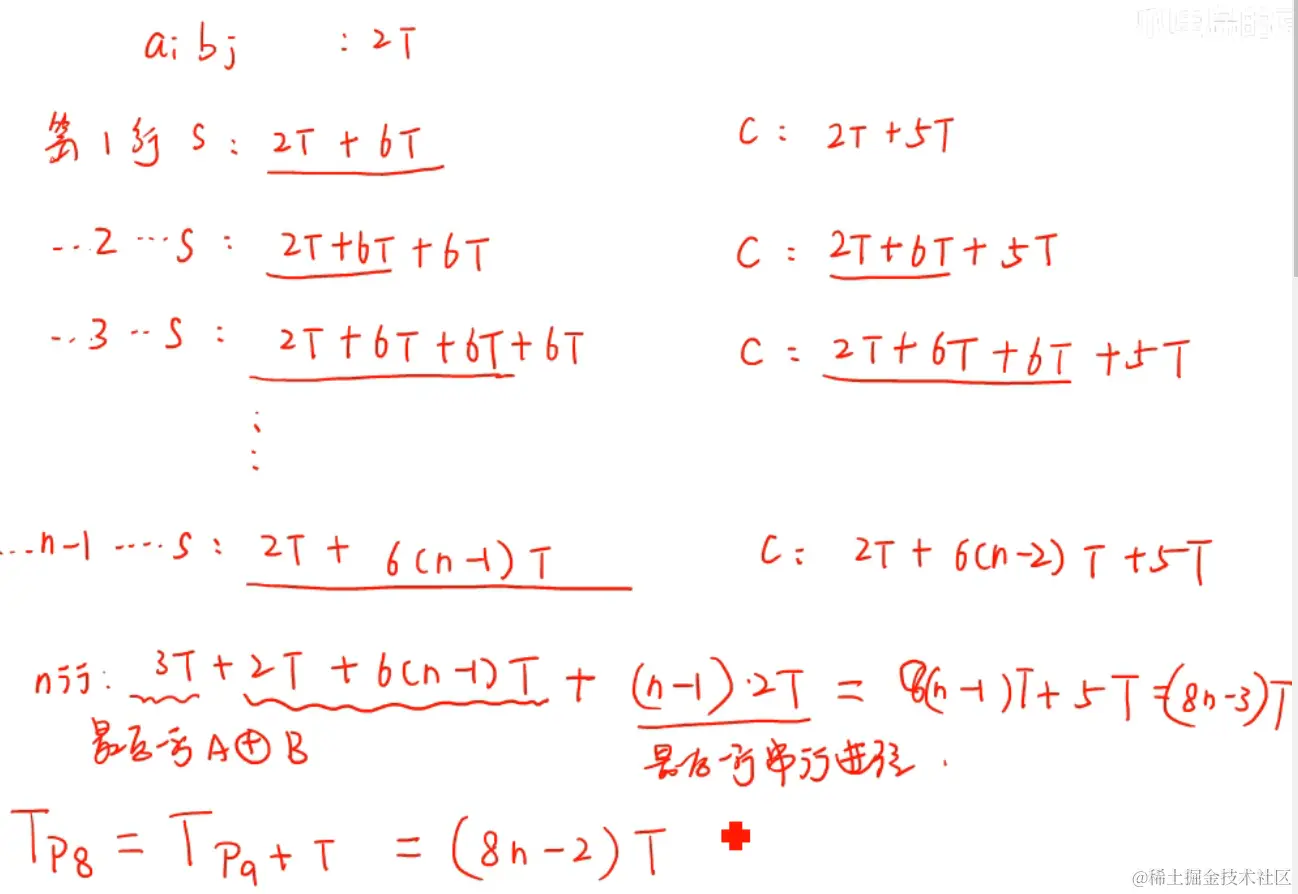 aᵢbⱼ : 2T
第1行 S: 2T + 6T C: 2T+5T
...2...S: 2T+6T+6T C: 2T+6T+5T
...3..S: 2T+6T+6T+6T C: 2T+6T+6T+5T
...n-1....S: 2T+ 6(n-1)T C: 2T+6(n-2)T+5T
n行: 3T+2T+6(n-1)T+(n-1)·2T = 8(n-1)T+5T=(8n-3)T
最后一行A⊕B 最后一行串行进位.
T_P8 = T_P9+T = (8n-2)T
@稀土掘金技术社区